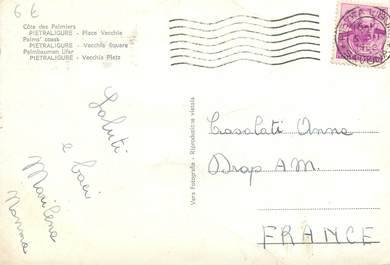 6 €
Côte des Palmiers
PIETRALIGURE - Place Vecchie
Palms' coast
PIETRALIGURE - Vecchia Square
Palmbaumen Ufer
PIETRALIGURE - Vecchia Platz
Saluti
e baci
Marilena
Nonna
Vera Fotografia - Riproduzione vietata
Casalati Anna
Drap A.M.
FRANCE